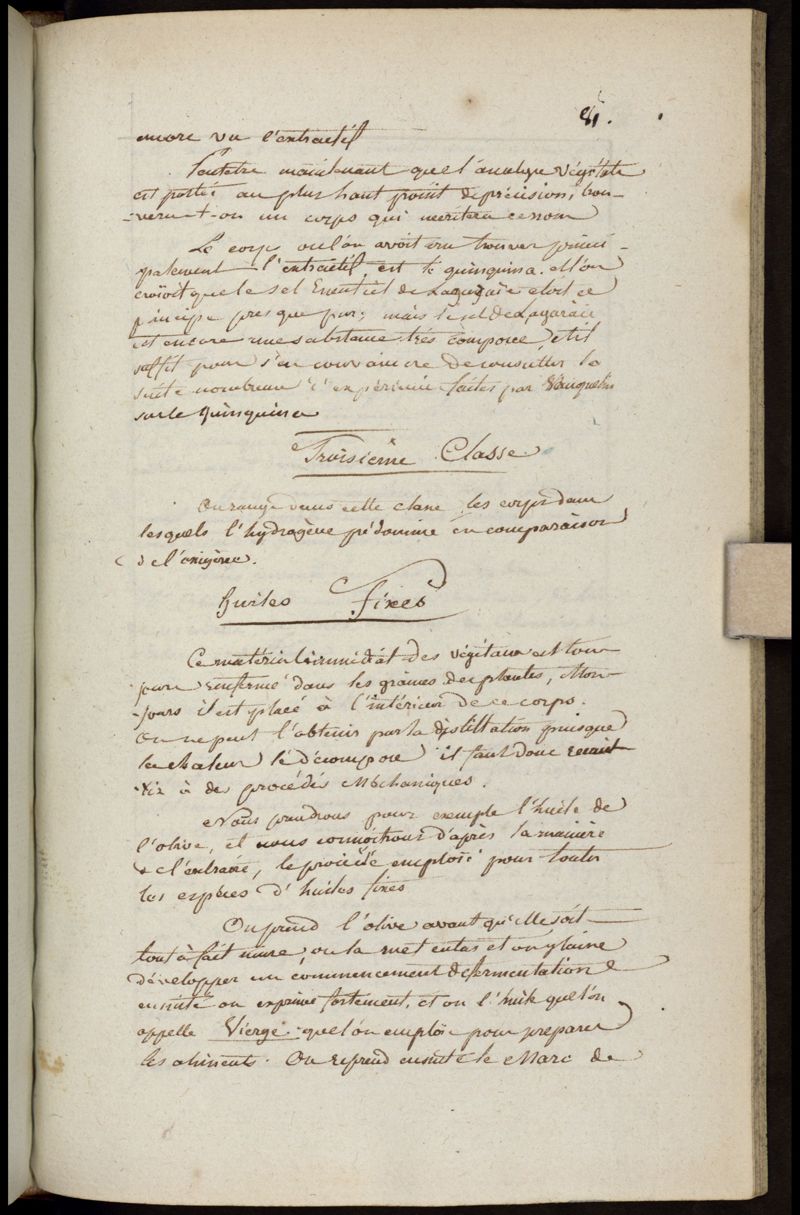 encore vu l'extractif
Peutetre maintenant que l'analyse végétale
est portée au plus haut point de précision, trou-
-vera-t-on un corps qui meritera ce nom
Le corps ou l'on avoit cru trouver princi-
palement l'extractif, est le quinquina. et l'on
croïoit que le sel Essentiel de Lagaraie etoit ce
principe presque pur; mais le sel de Lagaraie
est encore une substance très composée, et il
suffit pour s'en convaincre de consulter la
suite nombreuse d'expérience faites par Vauquelin
sur le Quinquina
Troisieme Classe
On range dans cette classe les corps dans
lesquels l'hydrogène prédomine en comparaison
de l'oxigène.
huiles Fixes
Ce matérial immédiat des végétaux est tou-
jours renfermé dans les graines des plantes,
-jours il est placé à l'intérieur de ce corps.
On ne peut l'obtenir par la distillation puisque
la chaleur le décompose il faut donc
à des procédés Méchaniques.
Nous prendrons pour exemple l'huile de
l'olive, et nous connoitrons d'après la manière
de l'extraire, le procédé emploié pour toutes
les espèces d'huiles fixes
On prend l'olive avant qu'elle soit
tout à fait mure, on la met en tas et on y laisse
développer un commencement de fermentation
ensuite on exprime fortement, et on a l'huile que l'on
appelle Vierge que l'on emploie pour préparer
les aliments. On reprend ensuite le Marc de